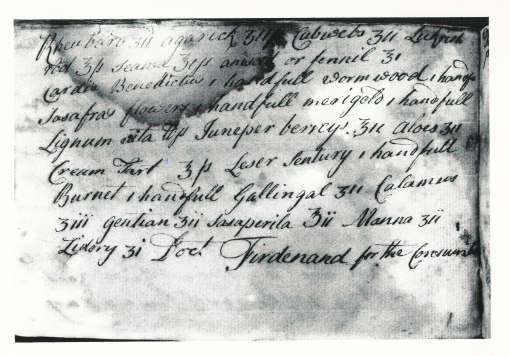 Rheubarb ʒii agarick ʒii Cubwebs ʒii Lickrish
rod ʒſs Seanea ʒiſs aniseed or fennil ʒi
Cardis Benedictus 1 handfull worm wood 1 handf
Sasafrax flowers 1 handfull merigold 1 handfull
Lignum vita Juneper berreys ʒii Aloes ʒii
Cream Tart ʒſs Leser Sentury 1 handfull
Burnet 1 handfull Gallingal ʒii Calamus
ʒiii gentian ʒii Sasaperila ʒii Manna ʒii
ʒi Doct Firdenand for the